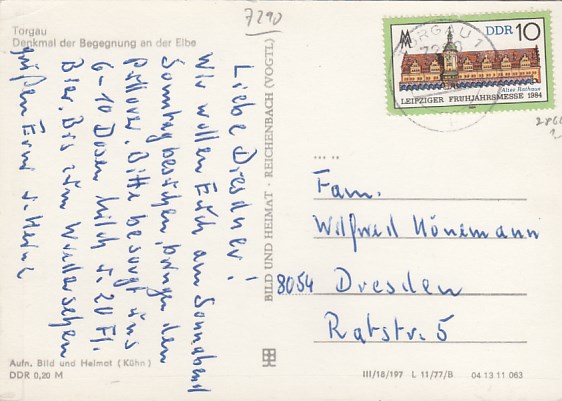 7290
Torgau
Denkmal der Begegnung an der Elbe
Liebe Dresdner!
Wir wollen Euch am Sonnabend
Sonntag besuchen, bringen den
Pullover. Bitte besorgt uns
6-10 Dosen Milch u. 20 Fl.
Bier. Bis zum Wiedersehen
grüßen Erni u. Heinz
Aufn. Bild und Heimat (Kühn)
DDR 0,20 M
BILD UND HEIMAT · REICHENBACH (VOGTL)
TORGAU 1
7290
DDR 10
Altes Rathaus
LEIPZIGER FRÜHJAHRSMESSE 1984
Fam.
Wilfried Hönemann
8054 Dresden
Ratstr. 5
III/18/197 L 11/77/B 04 13 11 063